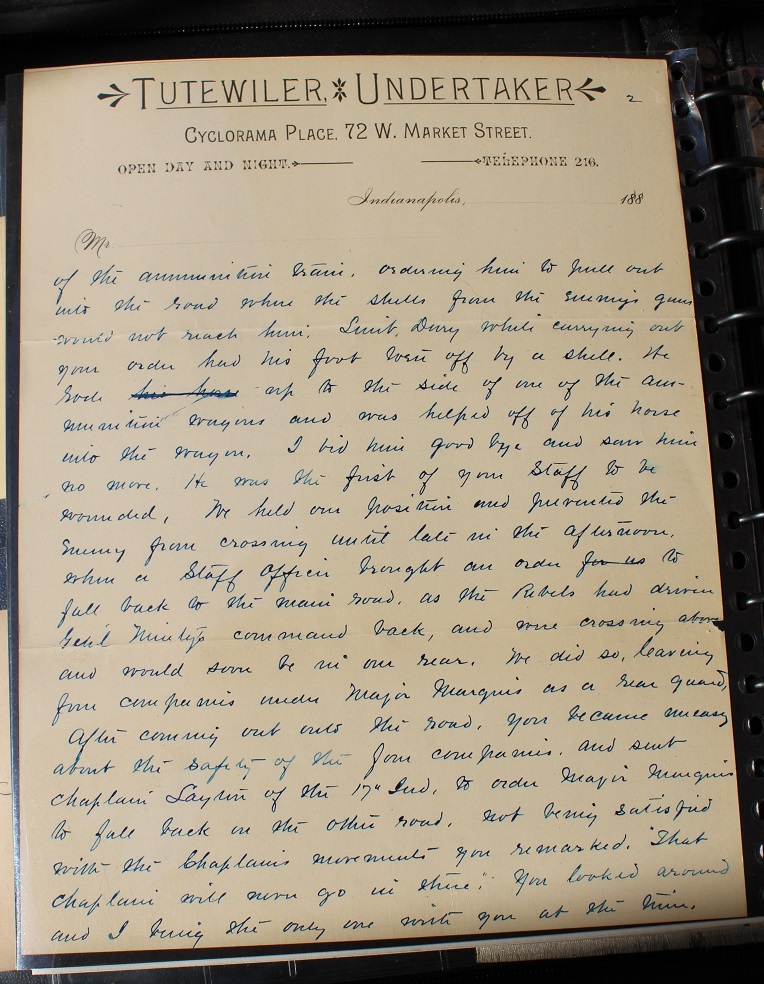 TUTEWILER, UNDERTAKER
2
CYCLORAMA PLACE, 72 W. MARKET STREET.
OPEN DAY AND NIGHT. TELEPHONE 216.
Indianapolis, 188
Mr
of the ammunition train. ordering him to pull out
into the road where the shells from the Enemys guns
would not reach him. Lieut. Dury while carrying out
your order had his foot torn off by a shell. He
rode his horse up to the side of one of the am-
munition wagons and was helped off of his horse
into the wagon. I bid him good bye and saw him
no more. He was the first of your Staff to be
wounded, We held our position and prevented the
Enemy from crossing until late in the afternoon.
when a Staff Officer brought an order for us to
fall back to the main road. as the Rebels had driven
Genl Mintys command back, and were crossing above
and would soon be in our rear. We did so, leaving
four companies under Major Marquis as a rear guard,
After coming out onto the road. you became uneasy
about the safety of the four companies. and sent
Chaplain Layton of the 17" Ind, to order Major Marquis
to fall back on the other road. not being satisfied
with the Chaplains movements you remarked. "That
chaplain will never go in there". You looked around
and I being the only one with you at the time.